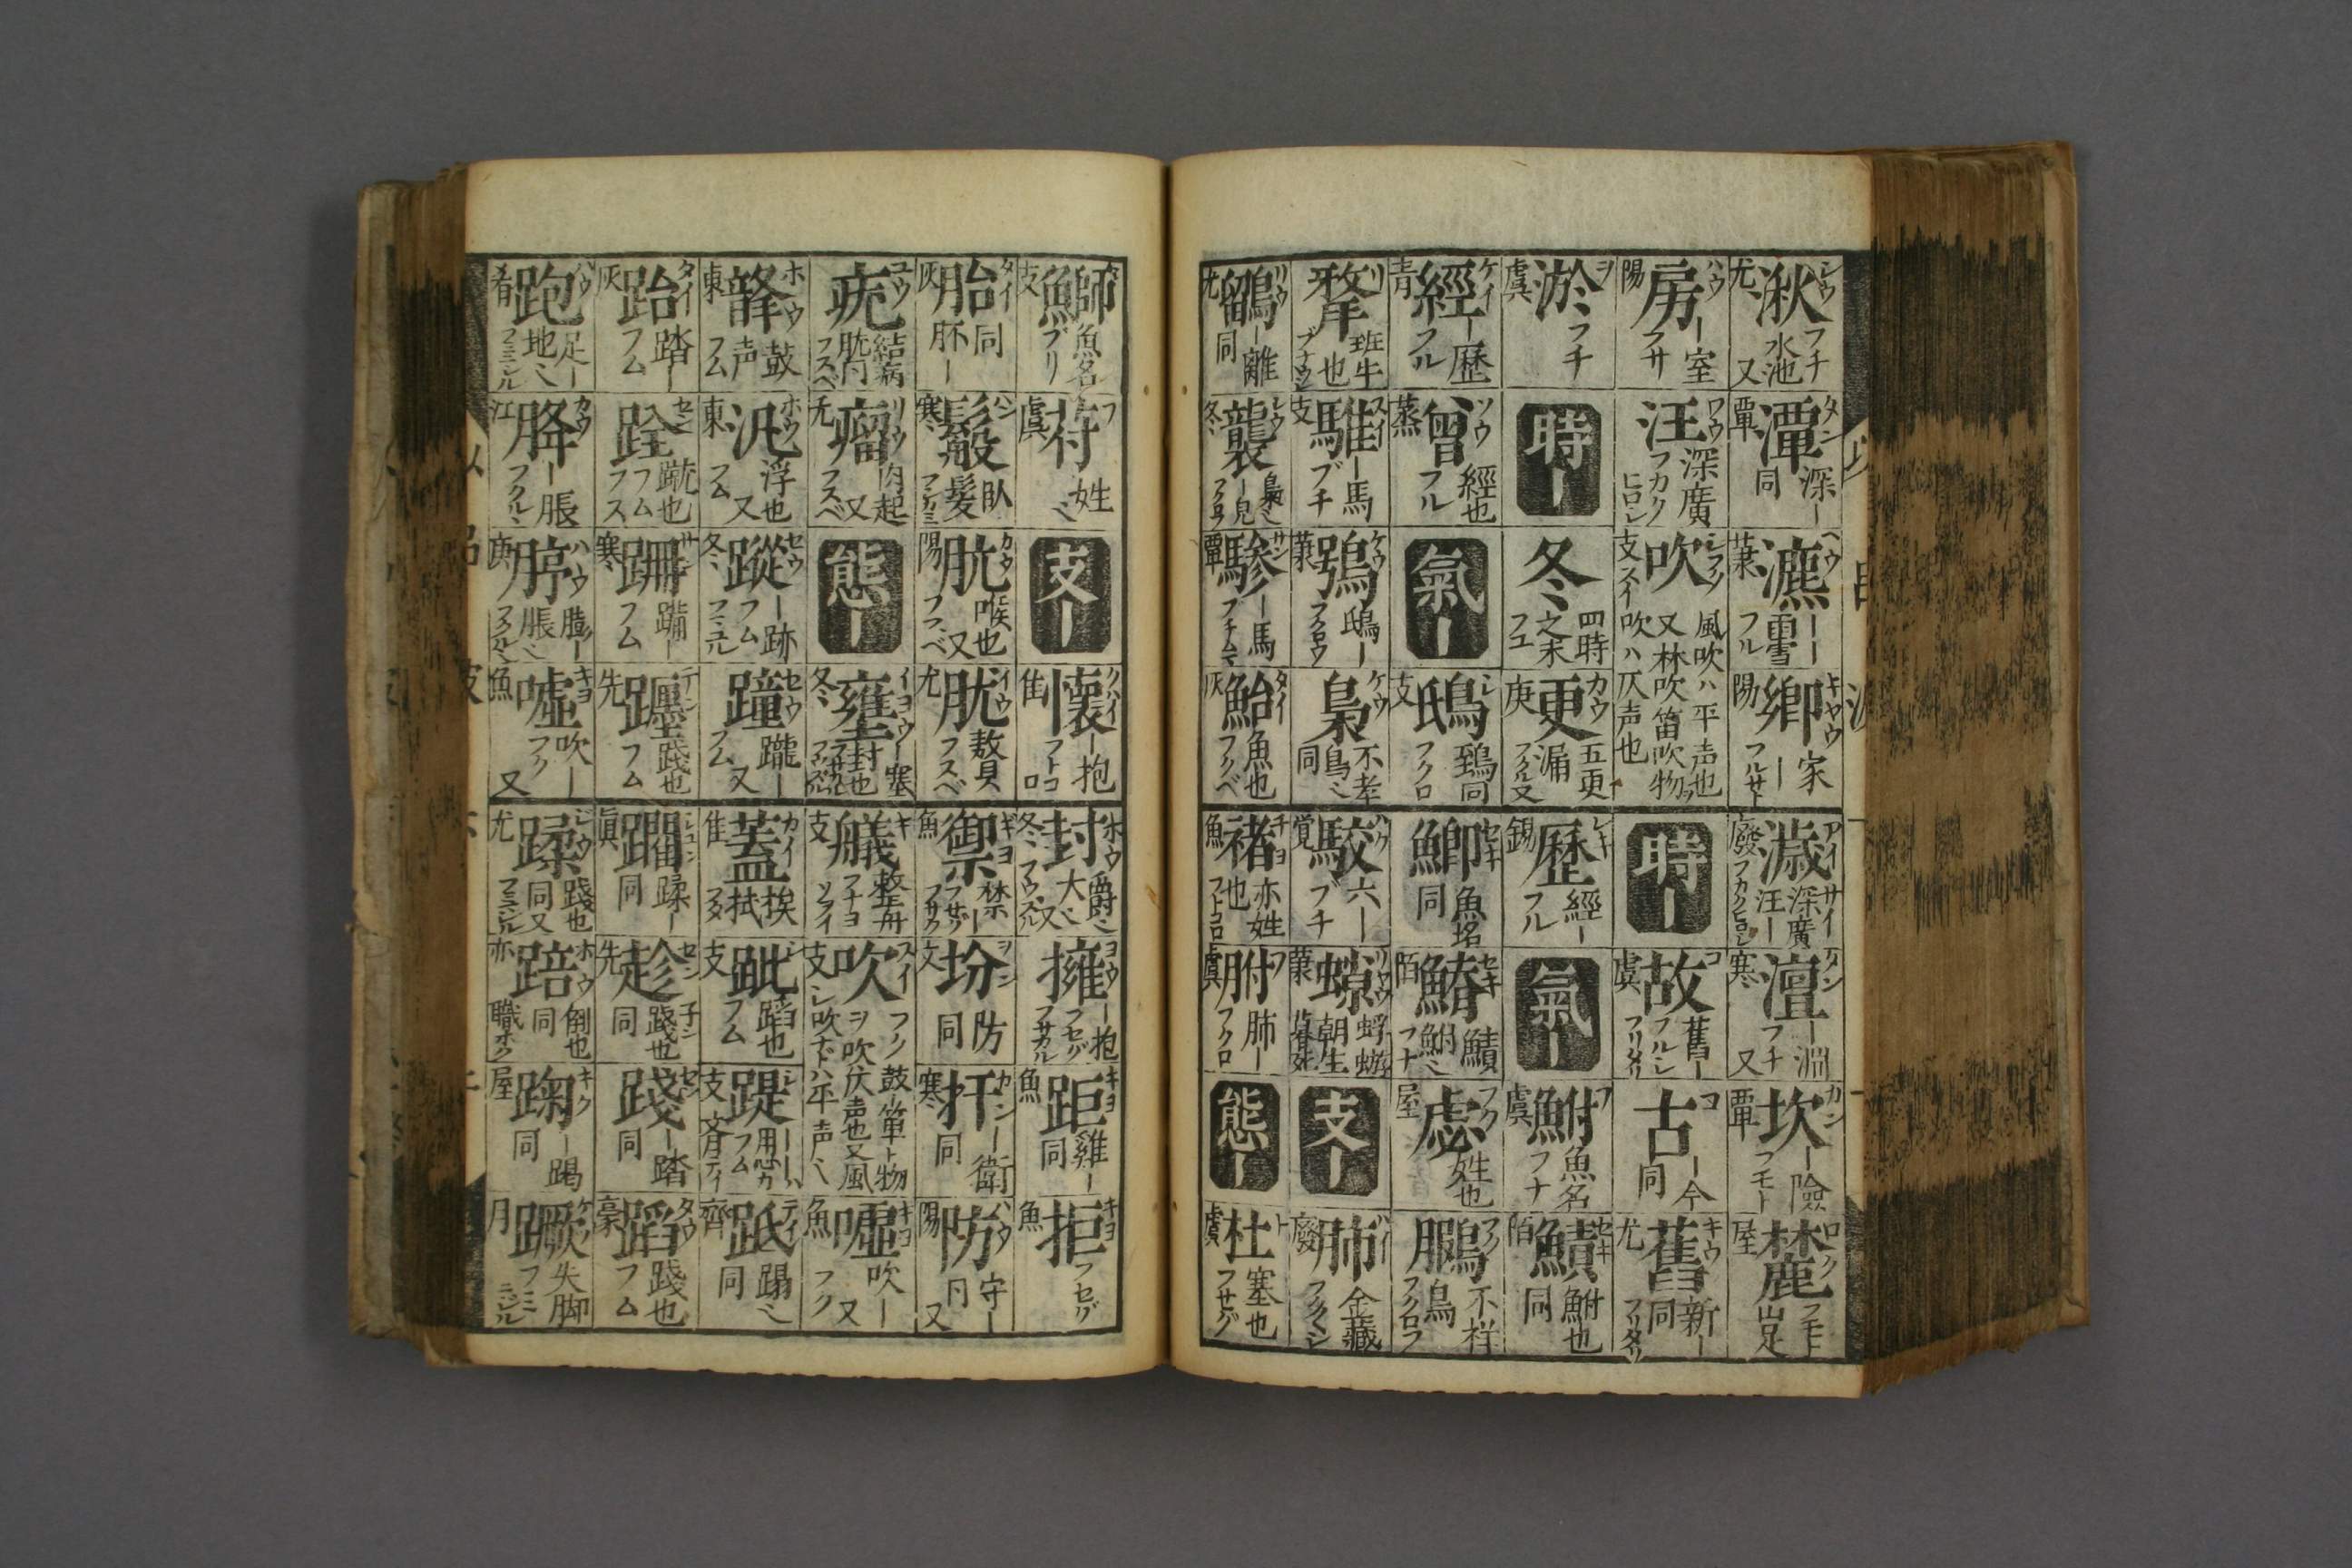 湫 シウ 尤 フチ 水池 又 潭 タン 覃 深ー 同 瀌 ヘウ 蕭 ーー 雪 フル 郷 キヤウ 陽 家ー フルサト
濊 アイ サイ 廢 深廣 汪ー フカクヒロシ 澶 タン 寒 ー淵 フチ 又 坎 カン 覃 ー險 フモト 麓 ロク 屋 フモト 山足
房 ハウ 陽 ー室 フサ 汪 ワウ 深廣 フカク ヒロシ 吹 支 スイ 風吹ハ平声也 又林吹笛吹物 吹ハ仄声也
時ー 故 コ 虞 舊ー フルシ フリタリ 古 コ ー今 同 舊 キウ 尤 新ー 同 フリタリ
淤 ヲ 虞 フチ 時ー 冬 四時之末 フユ 更 カウ 庚 五更 漏 フクル 又
歴 レキ 錫 經ー フル 氣ー 鮒 フ 虞 魚名 フナ 鰿 セキ 陌 鮒也 同
經 ケイ 青 ー歴 フル 曾 ソウ 蒸 經也 フル 氣ー 鴟 シ 支 鵄同 フクロ
鯽 セキ 魚名 同 鰭 セキ 陌 鰿 鮒〻 フナ 虙 フク 屋 姓也 鵩 フク 不祥鳥 フクロフ
犛 リ 班牛也 ブチウシ 騅 スイ 支 ー馬 ブチ 鴞 ケウ 蕭 鴟ー フクロウ 梟 ケウ 不孝鳥〻 同
駮 ハク 覚 六ー ブチ 蜉蝣 朝生 支ー 肺 ハイ 廢 金藏 フクシ
鶹 リウ 尤 ー離 同 冬 梟〻 フクロ 驂 サン 覃 ー馬 鮐 タイ 灰 魚也 フクベ
褚 チヨ 魚 亦姓也 フトコロ 胕 フ 虞 肺ー フクロ 態ー 杜 ト 虞 塞也 フサグ
鰤 支 魚名 ブリ 苻 フ 虞 姓〻 支ー 懐 クハイ 佳 ー抱 フトコロ
封 ホウ 冬 爵〻 大〻 又 擁 ヨウ ー抱 フセグ フサガル 距 キヨ 魚 雞ー 同 拒 キヨ 魚 フセグ
胎 タイ 灰 同 胚ー 鬆 寒 臥髪 肮 カウ 陽 喉也 又 フヽベ 肬 イウ 尤 贅 フスベ
禦 ギヨ 魚 禁ー フセグ フサク 坋 フン 文 防 同 扞 カン 寒 ー衛 同 防 ハウ 陽 守ー 又
疣 ユウ 結病 フスベ 瘤 リウ 尤 肉起 又 フスベ 態ー 壅 イヨウ 冬 ー塞 封也
艤 ギ 支 整舟 フナヨソヲイ 吹 スイ 支 フク 鼓ー 物ヲ吹 仄声也 又 風 吹ハ平声〻 嘘 キヨ 魚 吹ー 又 フク
韸 ホウ 東 鼓声 フム 汎 ホウ 東 浮也 又 フム 蹤 セウ 冬 ー跡 フム 蹱 セウ 躘ー 又 フム
蓋 カイ 佳 挨拭 フタ 跐 支 蹈也 フム 踶 支 フム 齊 テイ 跕 テイ 齊 蹋〻 同
跆 タイ 灰 踏ー フム 跧 セン 蹴也 フム フス 跚 サン 寒 蹣ー フム 躔 テン 先 践也 フム
躙 眞 蹂ー 同 趁 先 踐也 同 踐 セン ー踏 同 蹈 タウ 豪 踐也 フム
跑 ハウ 肴 足ー 地〻 胮 江 ー脹 フクルヽ 脝 ハウ 庚 膨ー 脹〻 嘘 キヨ 魚 吹ー 又 フク
蹂 ジウ 尤 踐也 同 又 踣 ホウ 倒也 同 亦 職 踘 キク 屋 ー蹋 同 蹶 ケツ 月 失脚